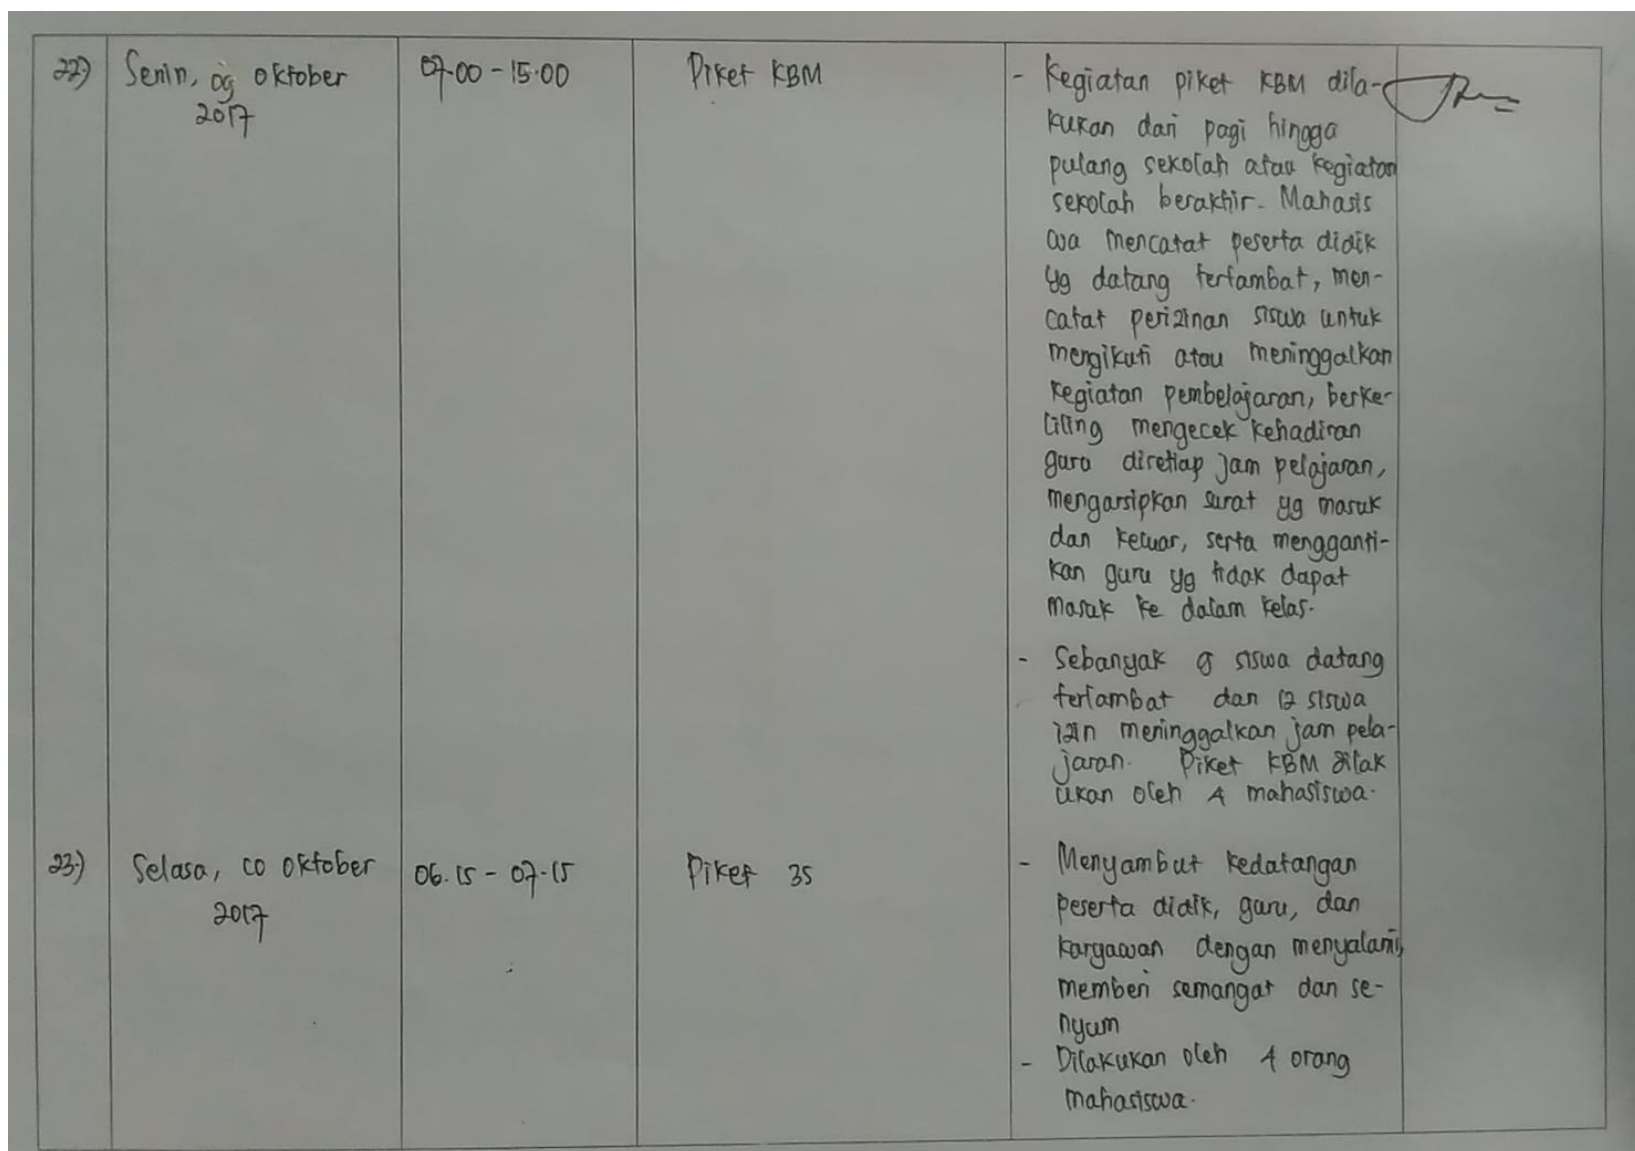 22) Senin, 09 Oktober 07.00 - 15.00 Piket KBM - Kegiatan piket KBM dila-
2017
kukan dari pagi hingga
pulang sekolah atau kegiatan
sekolah berakhir. Mahasis
wa mencatat peserta didik
yg datang terlambat, men-
catat perizinan siswa untuk
mengikuti atau meninggalkan
kegiatan pembelajaran, berke-
liling mengecek kehadiran
guru disetiap jam pelajaran,
mengarsipkan surat yg masuk
dan keluar, serta mengganti-
kan guru yg tidak dapat
masuk ke dalam kelas.
- Sebanyak siswa datang
terlambat dan 12 siswa
izin meninggalkan jam pela-
jaran. Piket KBM dilak
ukan oleh 4 mahasiswa.
23) Selasa, 10 Oktober 06.15 - 07.15 Piket 3S - Menyambut kedatangan
2017
peserta didik, guru, dan
karyawan dengan menyalami,
memberi semangat dan se-
nyum
- Dilakukan oleh 4 orang
mahasiswa.